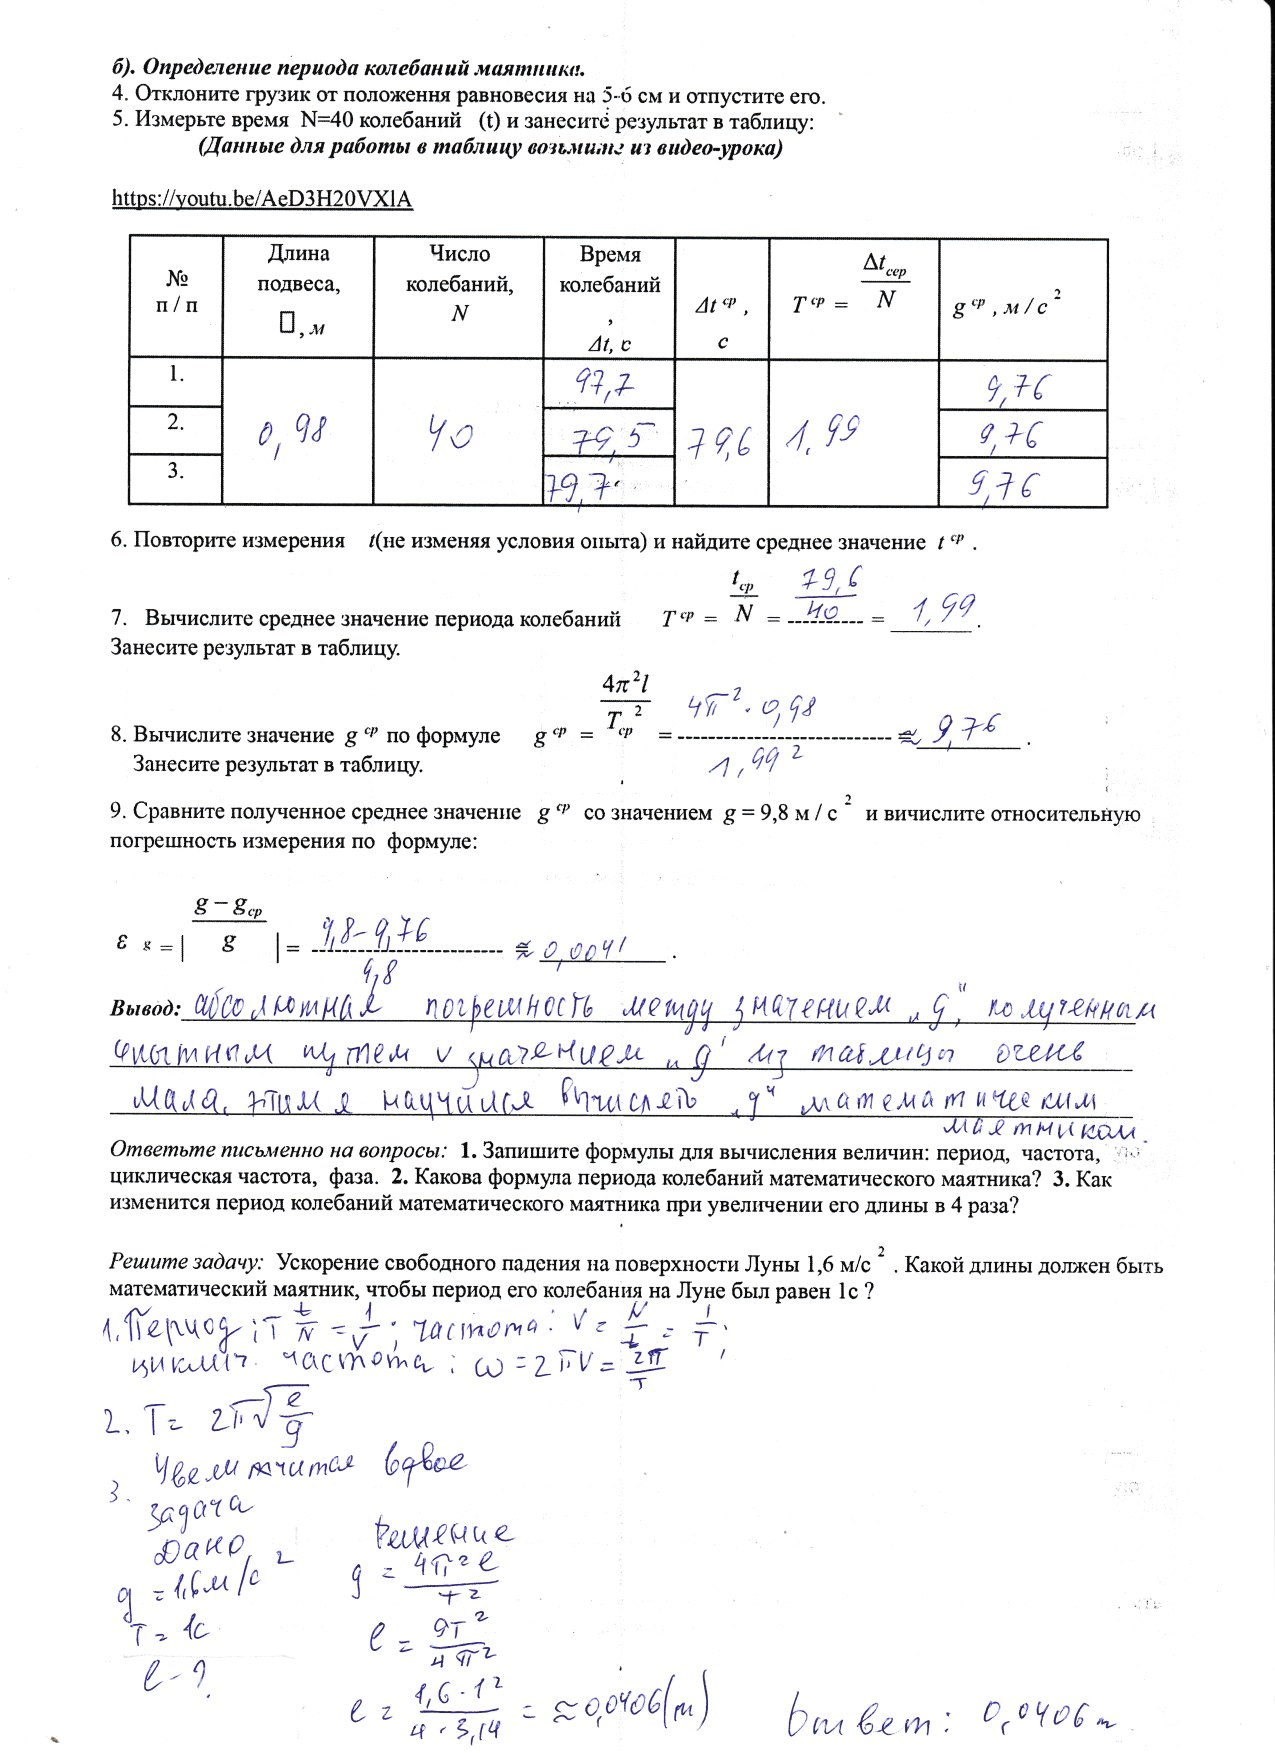 б). Определение периода колебаний маятника.
4. Отклоните грузик от положення равновесия на 5-6 см и отпустите его.
5. Измерьте время N=40 колебаний (t) и занесите результат в таблицу:
(Данные для работы в таблицу возьмите из видео-урока)
https://youtu.be/AeD3H20VXlA
№ п / п | Длина подвеса, , м | Число колебаний, N | Время колебаний , Δt, с | Δt ср , с | T ср = Δtсер / N | g ср , м / с 2
1. | 0,98 | 40 | 97,7 | 79,6 | 1.99 | 9,76
2. | 79,5 | 9,76
3. | 79,7 | 9,76
6. Повторите измерения t(не изменяя условия опыта) и найдите среднее значение t ср .
7. Вычислите среднее значение периода колебаний T ср = tср / N = 79,6 / 40 = 1,99 .
Занесите результат в таблицу.
8. Вычислите значение g ср по формуле g ср = 4π²l / Tср² = 4π² · 0,98 / 1,99² ≈ 9,76 .
Занесите результат в таблицу.
9. Сравните полученное среднее значение g ср со значением g = 9,8 м / с 2 и вичислите относительную
погрешность измерения по формуле:
ε g = | g − gср / g | = 9,8 − 9,76 / 9,8 ≈ 0,0041 .
Вывод: абсолютная погрешность между значением „g", полученным
опытным путем и значением „g" из таблицы очень
мала. этим я научился вычислять „g" математическим
маятником.
Ответьте письменно на вопросы: 1. Запишите формулы для вычисления величин: период, частота,
циклическая частота, фаза. 2. Какова формула периода колебаний математического маятника? 3. Как
изменится период колебаний математического маятника при увеличении его длины в 4 раза?
Решите задачу: Ускорение свободного падения на поверхности Луны 1,6 м/с 2 . Какой длины должен быть
математический маятник, чтобы период его колебания на Луне был равен 1с ?
1. Период ; T t/N = 1/ν ; частота: ν = N/t = 1/T ;
циклич. частота : ω = 2πν = 2π/T
2. T = 2π√(l/g)
3. Увеличится вдвое
Задача
Дано Решение
g = 1,6 м/с² g = 4π²l / T²
T = 1с l = gT² / 4π²
l - ?
l = 1,6 · 1² / 4 · 3,14 = ≈ 0,0406 (м) Ответ: 0,0406 м